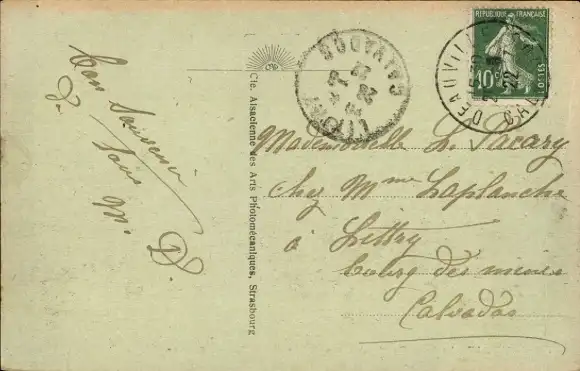 Bon Souvenir
de
tous
M. D.
Cie. Alsacienne des Arts Photomécaniques, Strasbourg
LITTRY
CALVADOS
DEAUVILLE
CALVADOS
22
REPUBLIQUE FRANÇAISE
10c
POSTES
Mademoiselle L. Vacary
Chez Mme Laplanche
à Littry
bourg des mines
Calvados